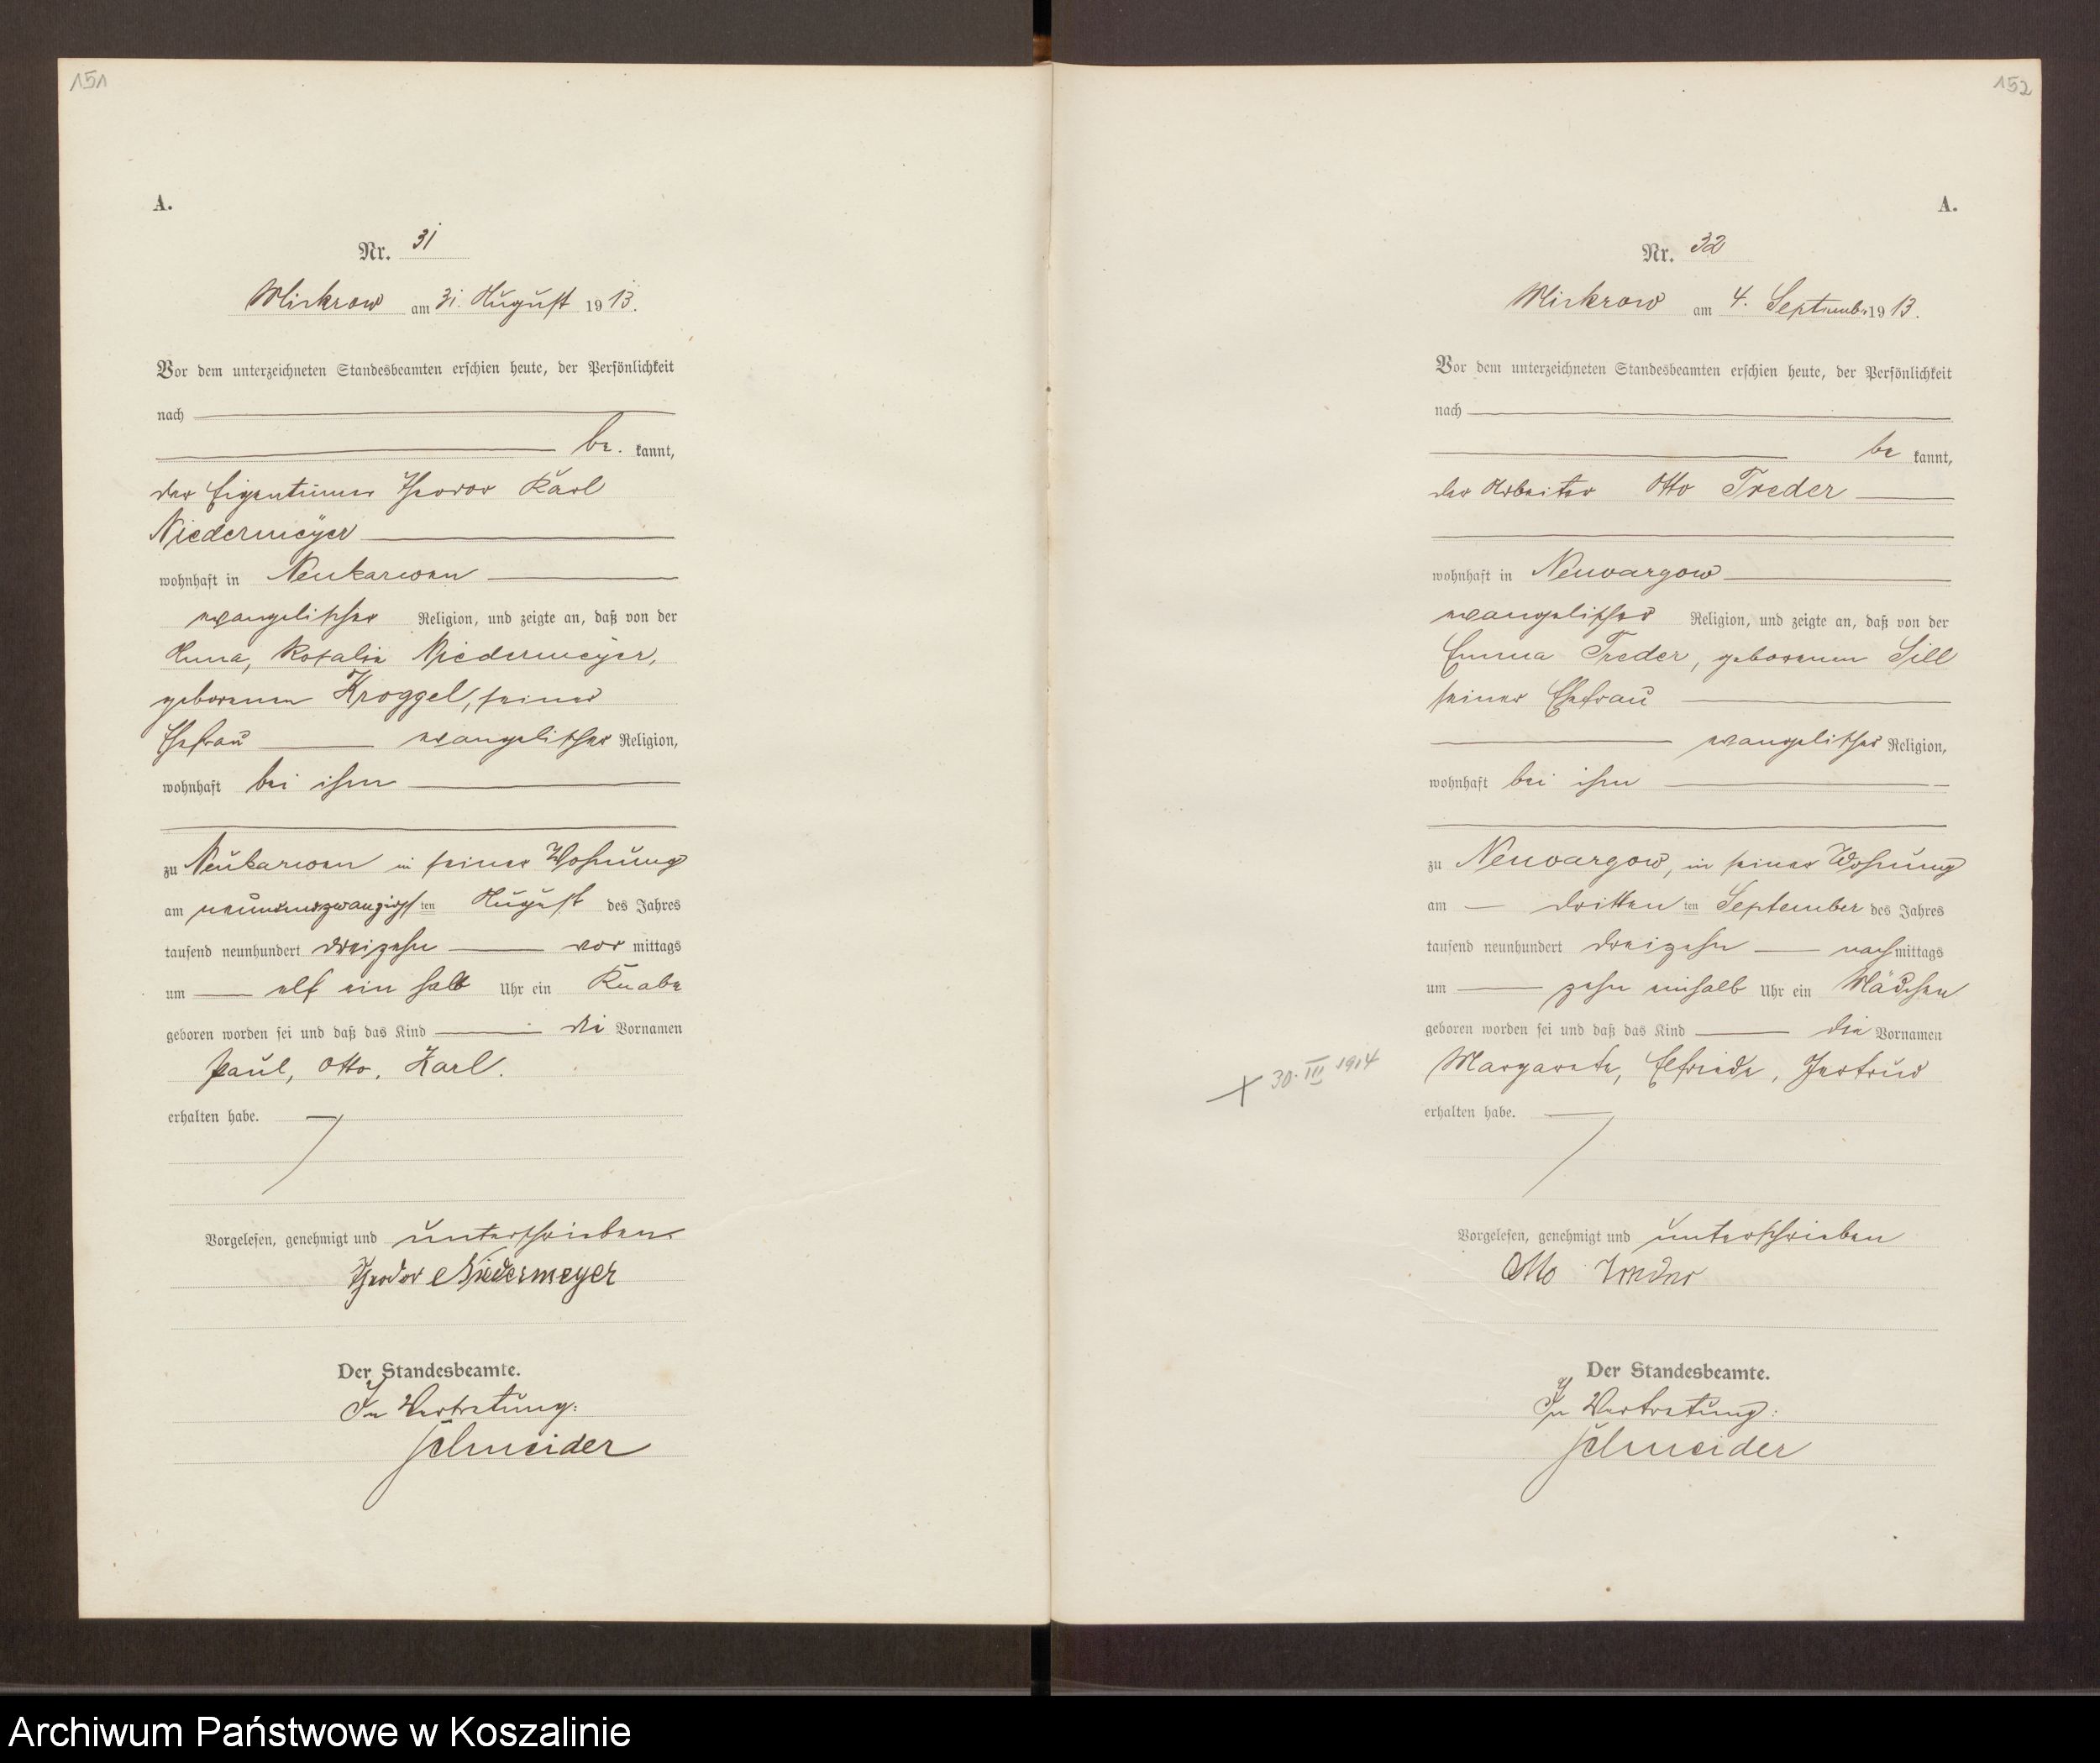 151
A.
Nr. 31
Mickrow am 31. August 1913.
Vor dem unterzeichneten Standesbeamten erschien heute, der Persönlichkeit
nach
be. kannt,
der Eigentümer Theodor Karl
Niedermeyer
wohnhaft in Neukarwen
evangelischer Religion, und zeigte an, daß von der
Anna, Rosalie Niedermeyer,
geborenen Kroggel, seiner
Ehefrau evangelischer Religion,
wohnhaft bei ihm
zu Neukarwen in seiner Wohnung
am neunundzwanzigsten August des Jahres
tausend neunhundert dreizehn vor mittags
um elf ein halb Uhr ein Knabe
geboren worden sei und daß das Kind die Vornamen
Paul, Otto, Karl.
erhalten habe.
Vorgelesen, genehmigt und unterschrieben
Theodor Niedermeyer
Der Standesbeamte.
In Vertretung:
Schneider
152
A.
Nr. 32
Mickrow am 4. September 1913.
Vor dem unterzeichneten Standesbeamten erschien heute, der Persönlichkeit
nach
be kannt,
der Arbeiter Otto Treder
wohnhaft in Neuvargow
evangelischer Religion, und zeigte an, daß von der
Emma Treder, geborenen Sill
seiner Ehefrau
evangelischer Religion,
wohnhaft bei ihm
zu Neuvargow, in seiner Wohnung
am dritten ten September des Jahres
tausend neunhundert dreizehn nach mittags
um zehn einhalb Uhr ein Mädchen
geboren worden sei und daß das Kind die Vornamen
+ 30. III 1914
Margarete, Elfriede, Gertrud
erhalten habe.
Vorgelesen, genehmigt und unterschrieben
Otto Treder
Der Standesbeamte.
In Vertretung:
Schneider
Archiwum Państwowe w Koszalinie